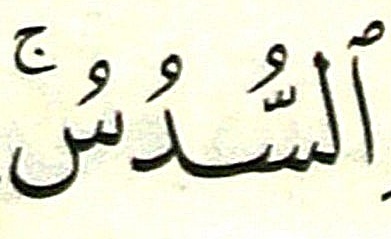 ٱلسُّدُسُ ۚ